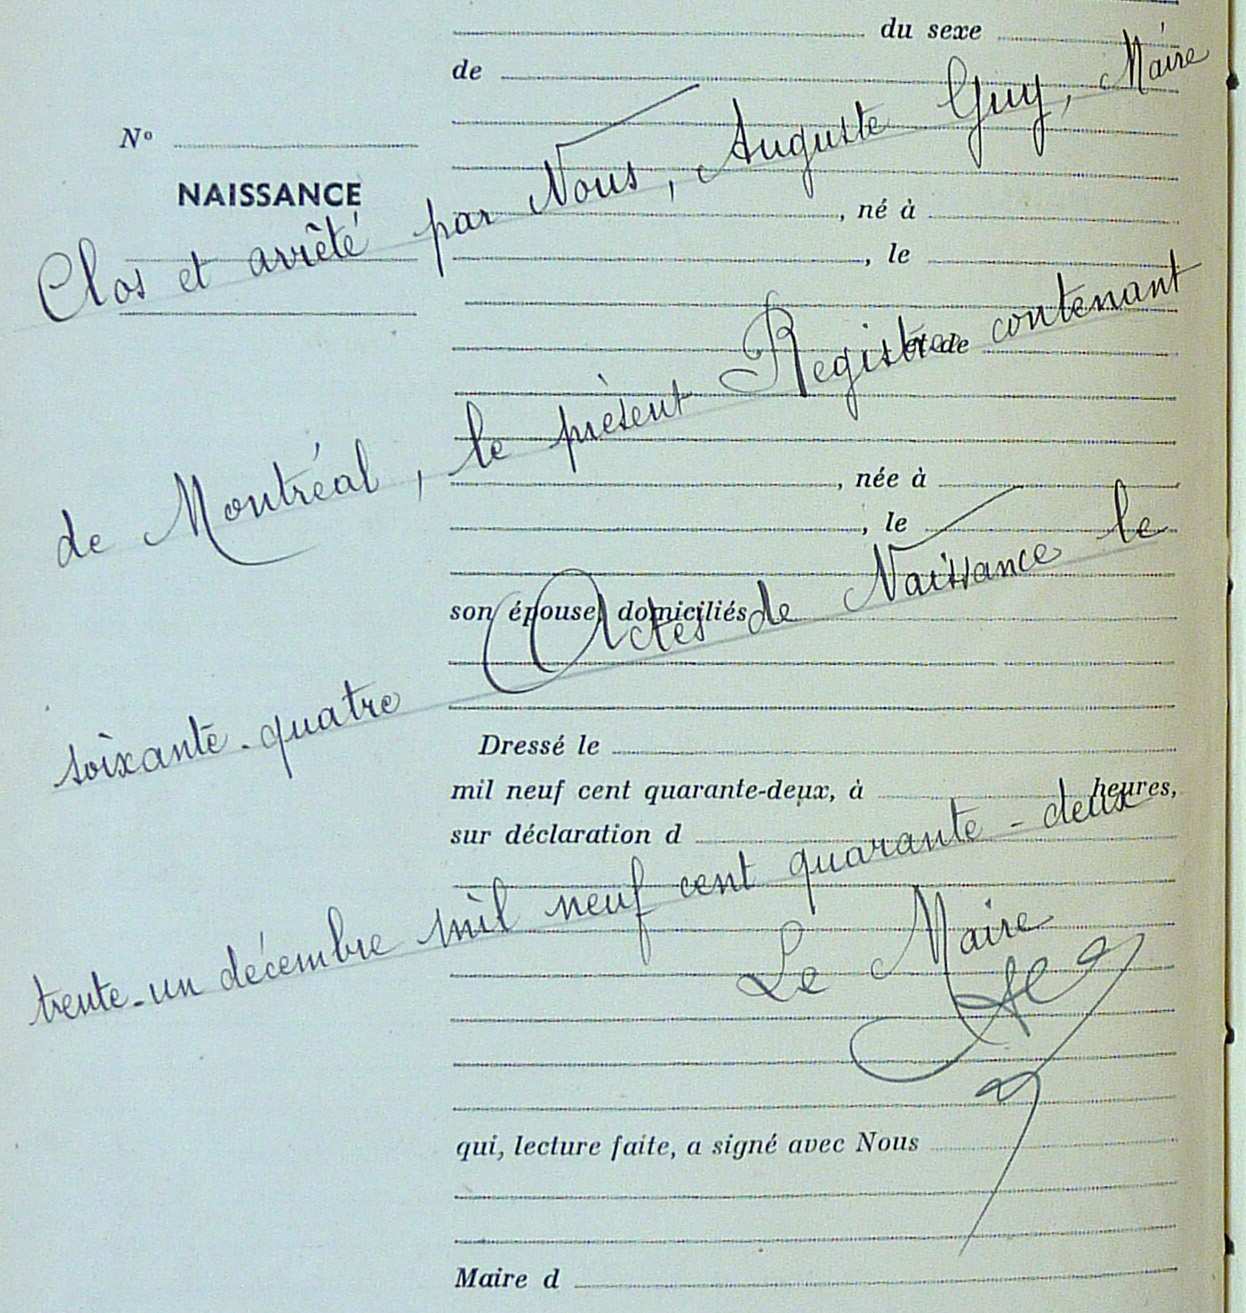 du sexe
de
N°
NAISSANCE
Clos et arrêté par Nous, Auguste Guy, Maire
, né à
, le
et de
de Montréal, le présent Registre contenant
, née à
, le
son épouse, domiciliés
soixante-quatre Actes de Naissance le
Dressé le
mil neuf cent quarante-deux, à heures,
sur déclaration d
trente-un décembre mil neuf cent quarante-deux
Le Maire
qui, lecture faite, a signé avec Nous
Maire d